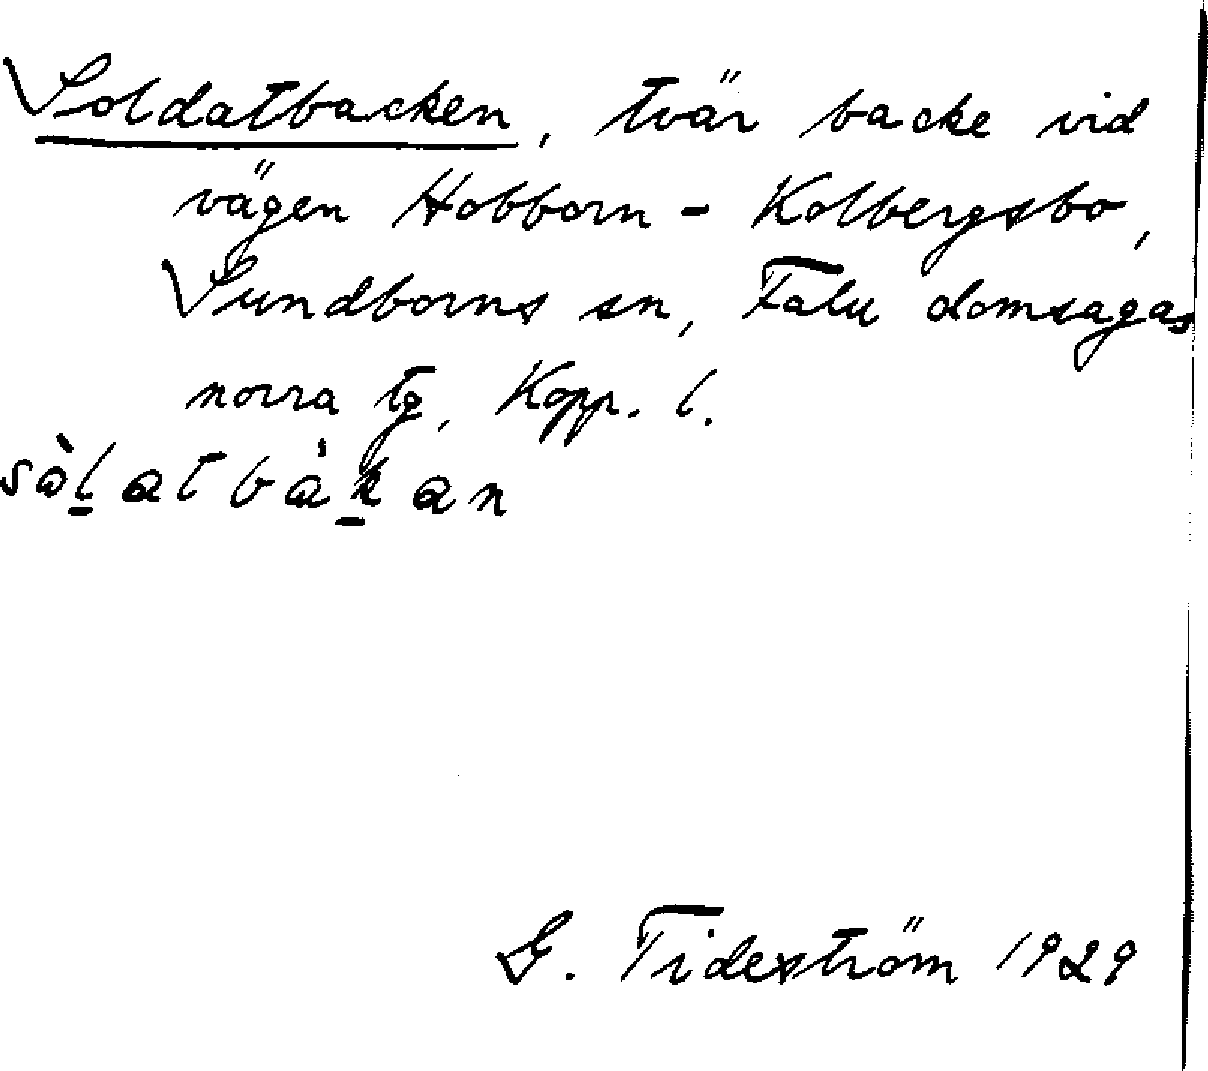 Soldatbacken, tvär backe vid
vägen Hobborn - Kolbergsbo,
Sundborns sn, Falu domsagas
norra tg, Kopp. l.
sàl̠atbàk̠an
G. Tideström 1929